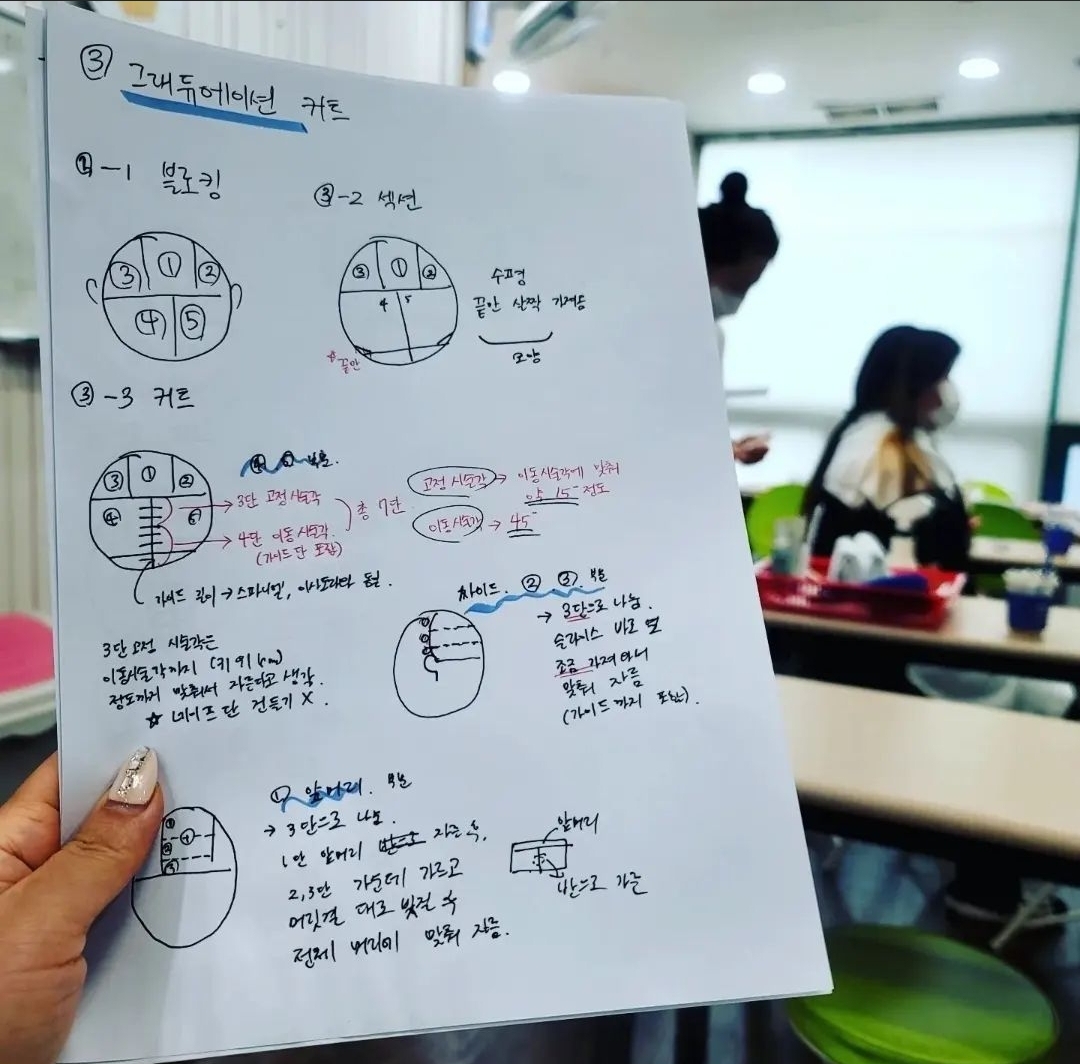 ③ 그래듀에이션 커트
③-1 블로킹
③ ① ②
④ ⑤
③-2 섹션
③ ① ②
4 5
☆끝만
수평
끝만 살짝
모양
③-3 커트
③ ① ②
④ 5
④ ⑤ 부분.
→ 3단 고정 시술각
→ 4단 이동 시술각.
(가이드 단 포함)
총 7단
고정 시술각 → 이동시술각에 맞춰
약 15° 정도
이동시술각 → 45°
가이드 길이 → 스파니엘, 이사도라와 동일.
3단 고정 시술각은
이동시술각까지
정도까지 맞춰서 자른다고 생각.
☆ 네이프 단 건들기 X.
사이드. ② ③. 부분
→ 3단으로 나눔.
슬라이스
조금 가져와서
맞춰 자름
(가이드까지 포함).
① 앞머리. 부분
→ 3단으로 나눔.
1단 앞머리 자른 후,
2,3단 가운데 가르고
머릿결 대로 빗질 후
전체 머리에 맞춰 자름.
앞머리
반으로 가름